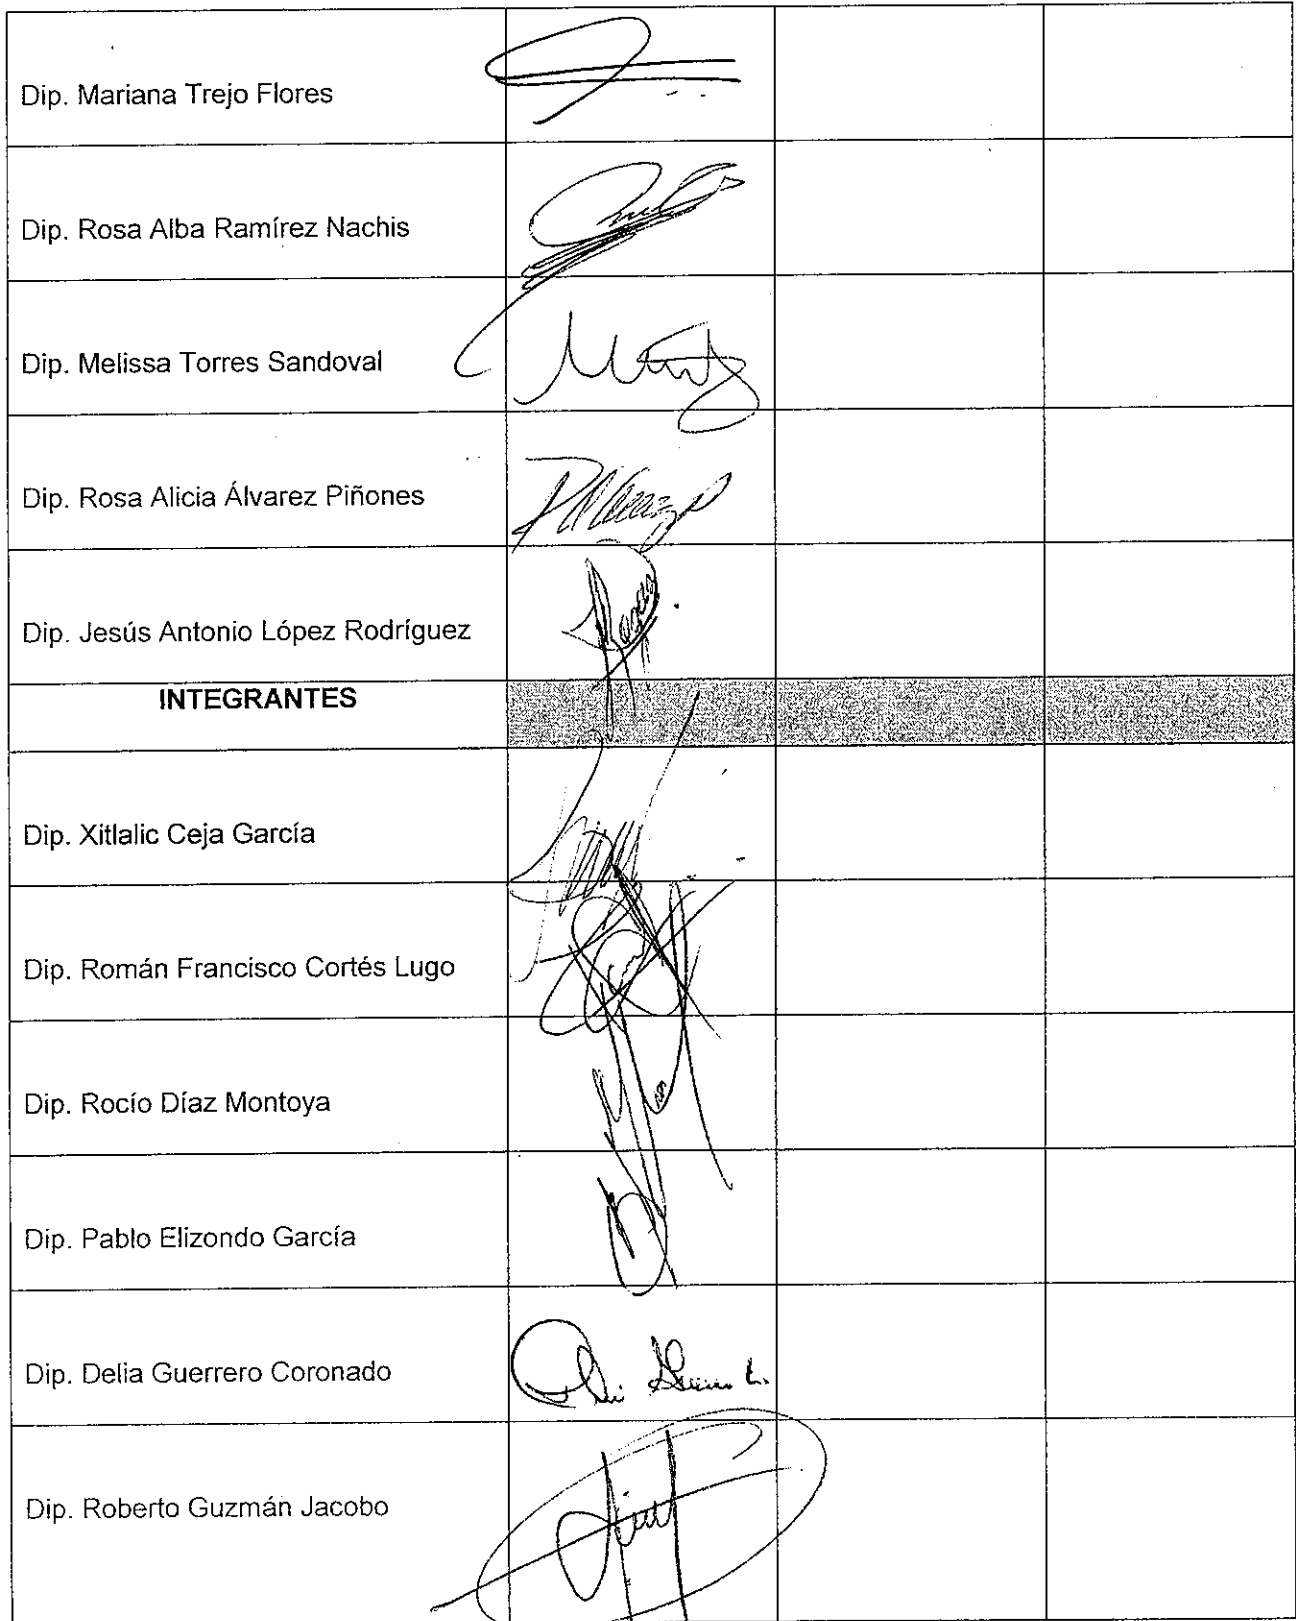 Dip. Mariana Trejo Flores
Dip. Rosa Alba Ramírez Nachis
Dip. Melissa Torres Sandoval
Dip. Rosa Alicia Álvarez Piñones
Dip. Jesús Antonio López Rodríguez
INTEGRANTES
Dip. Xitlalic Ceja García
Dip. Román Francisco Cortés Lugo
Dip. Rocío Díaz Montoya
Dip. Pablo Elizondo García
Dip. Delia Guerrero Coronado
Dip. Roberto Guzmán Jacobo